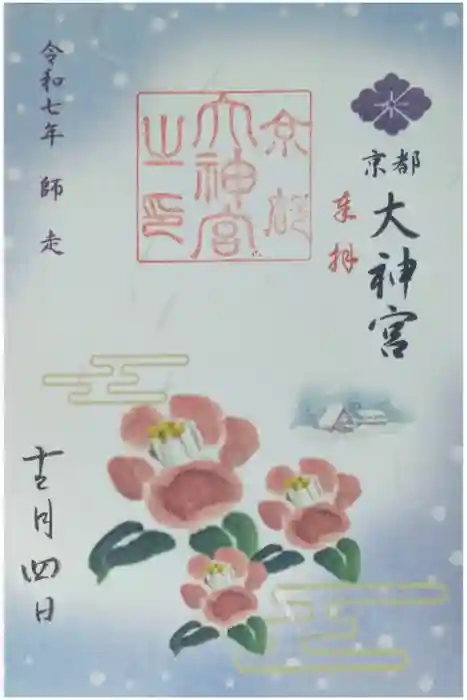 京都
大神宮
奉拝
京都
大神宮
之印
令和七年 師走
十二月四日